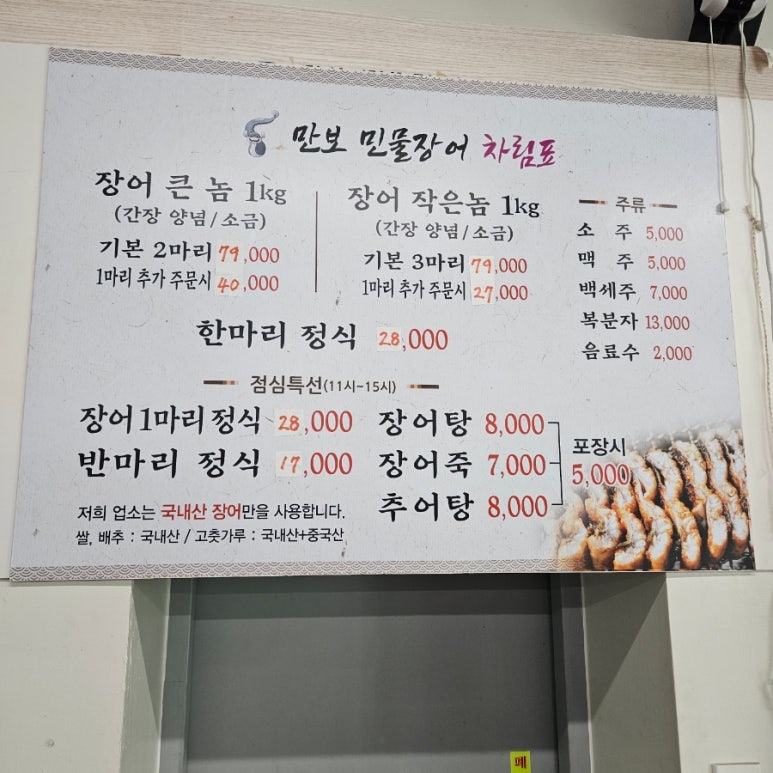 만보 민물장어 차림표
장어 큰 놈 1kg
(간장 양념/소금)
기본 2마리 79,000
1마리 추가 주문시 40,000
장어 작은놈 1kg
(간장 양념/소금)
기본 3마리 79,000
1마리 추가 주문시 27,000
주류
소 주 5,000
맥 주 5,000
백세주 7,000
복분자 13,000
음료수 2,000
한마리 정식 28,000
점심특선(11시~15시)
장어1마리정식 28,000
반마리 정식 17,000
장어탕 8,000
장어죽 7,000
추어탕 8,000
포장시
5,000
저희 업소는 국내산 장어만을 사용합니다.
쌀, 배추 : 국내산 / 고춧가루 : 국내산+중국산